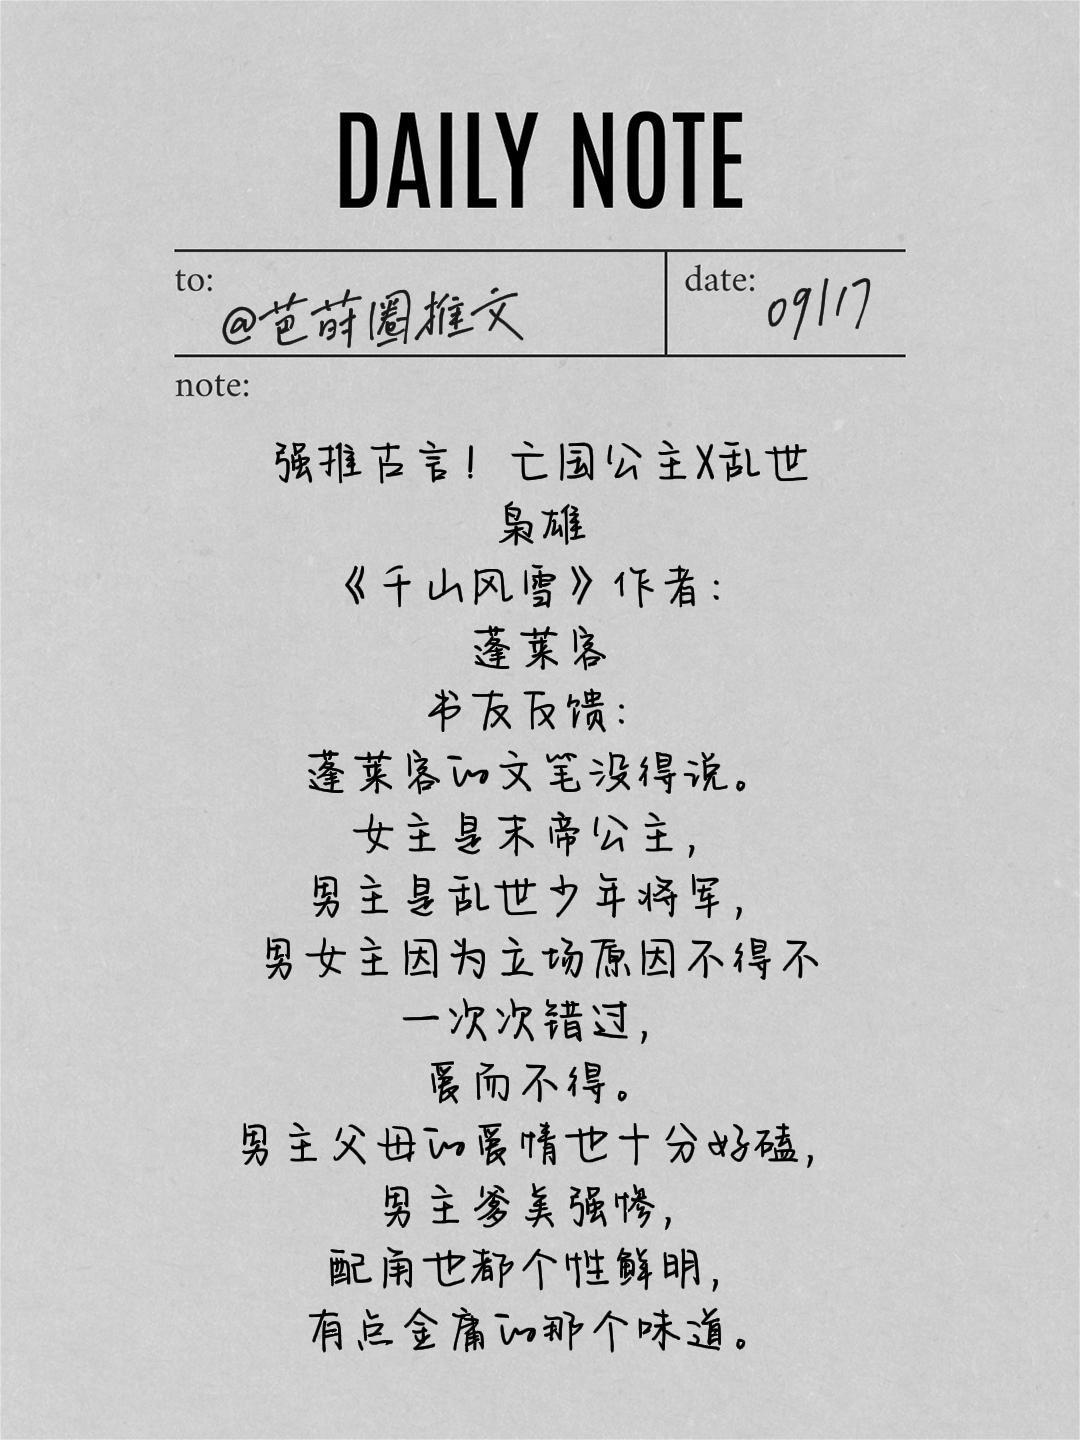 DAILY NOTE
to:
@芭莳圈推文
date:
09/17
note:
强推古言！亡国公主X乱世
枭雄
《千山风雪》作者：
蓬莱客
书友反馈：
蓬莱客的文笔没得说。
女主是末帝公主，
男主是乱世少年将军，
男女主因为立场原因不得不
一次次错过，
爱而不得。
男主父母的爱情也十分好磕，
男主爹美强惨，
配角也都个性鲜明，
有点金庸的那个味道。